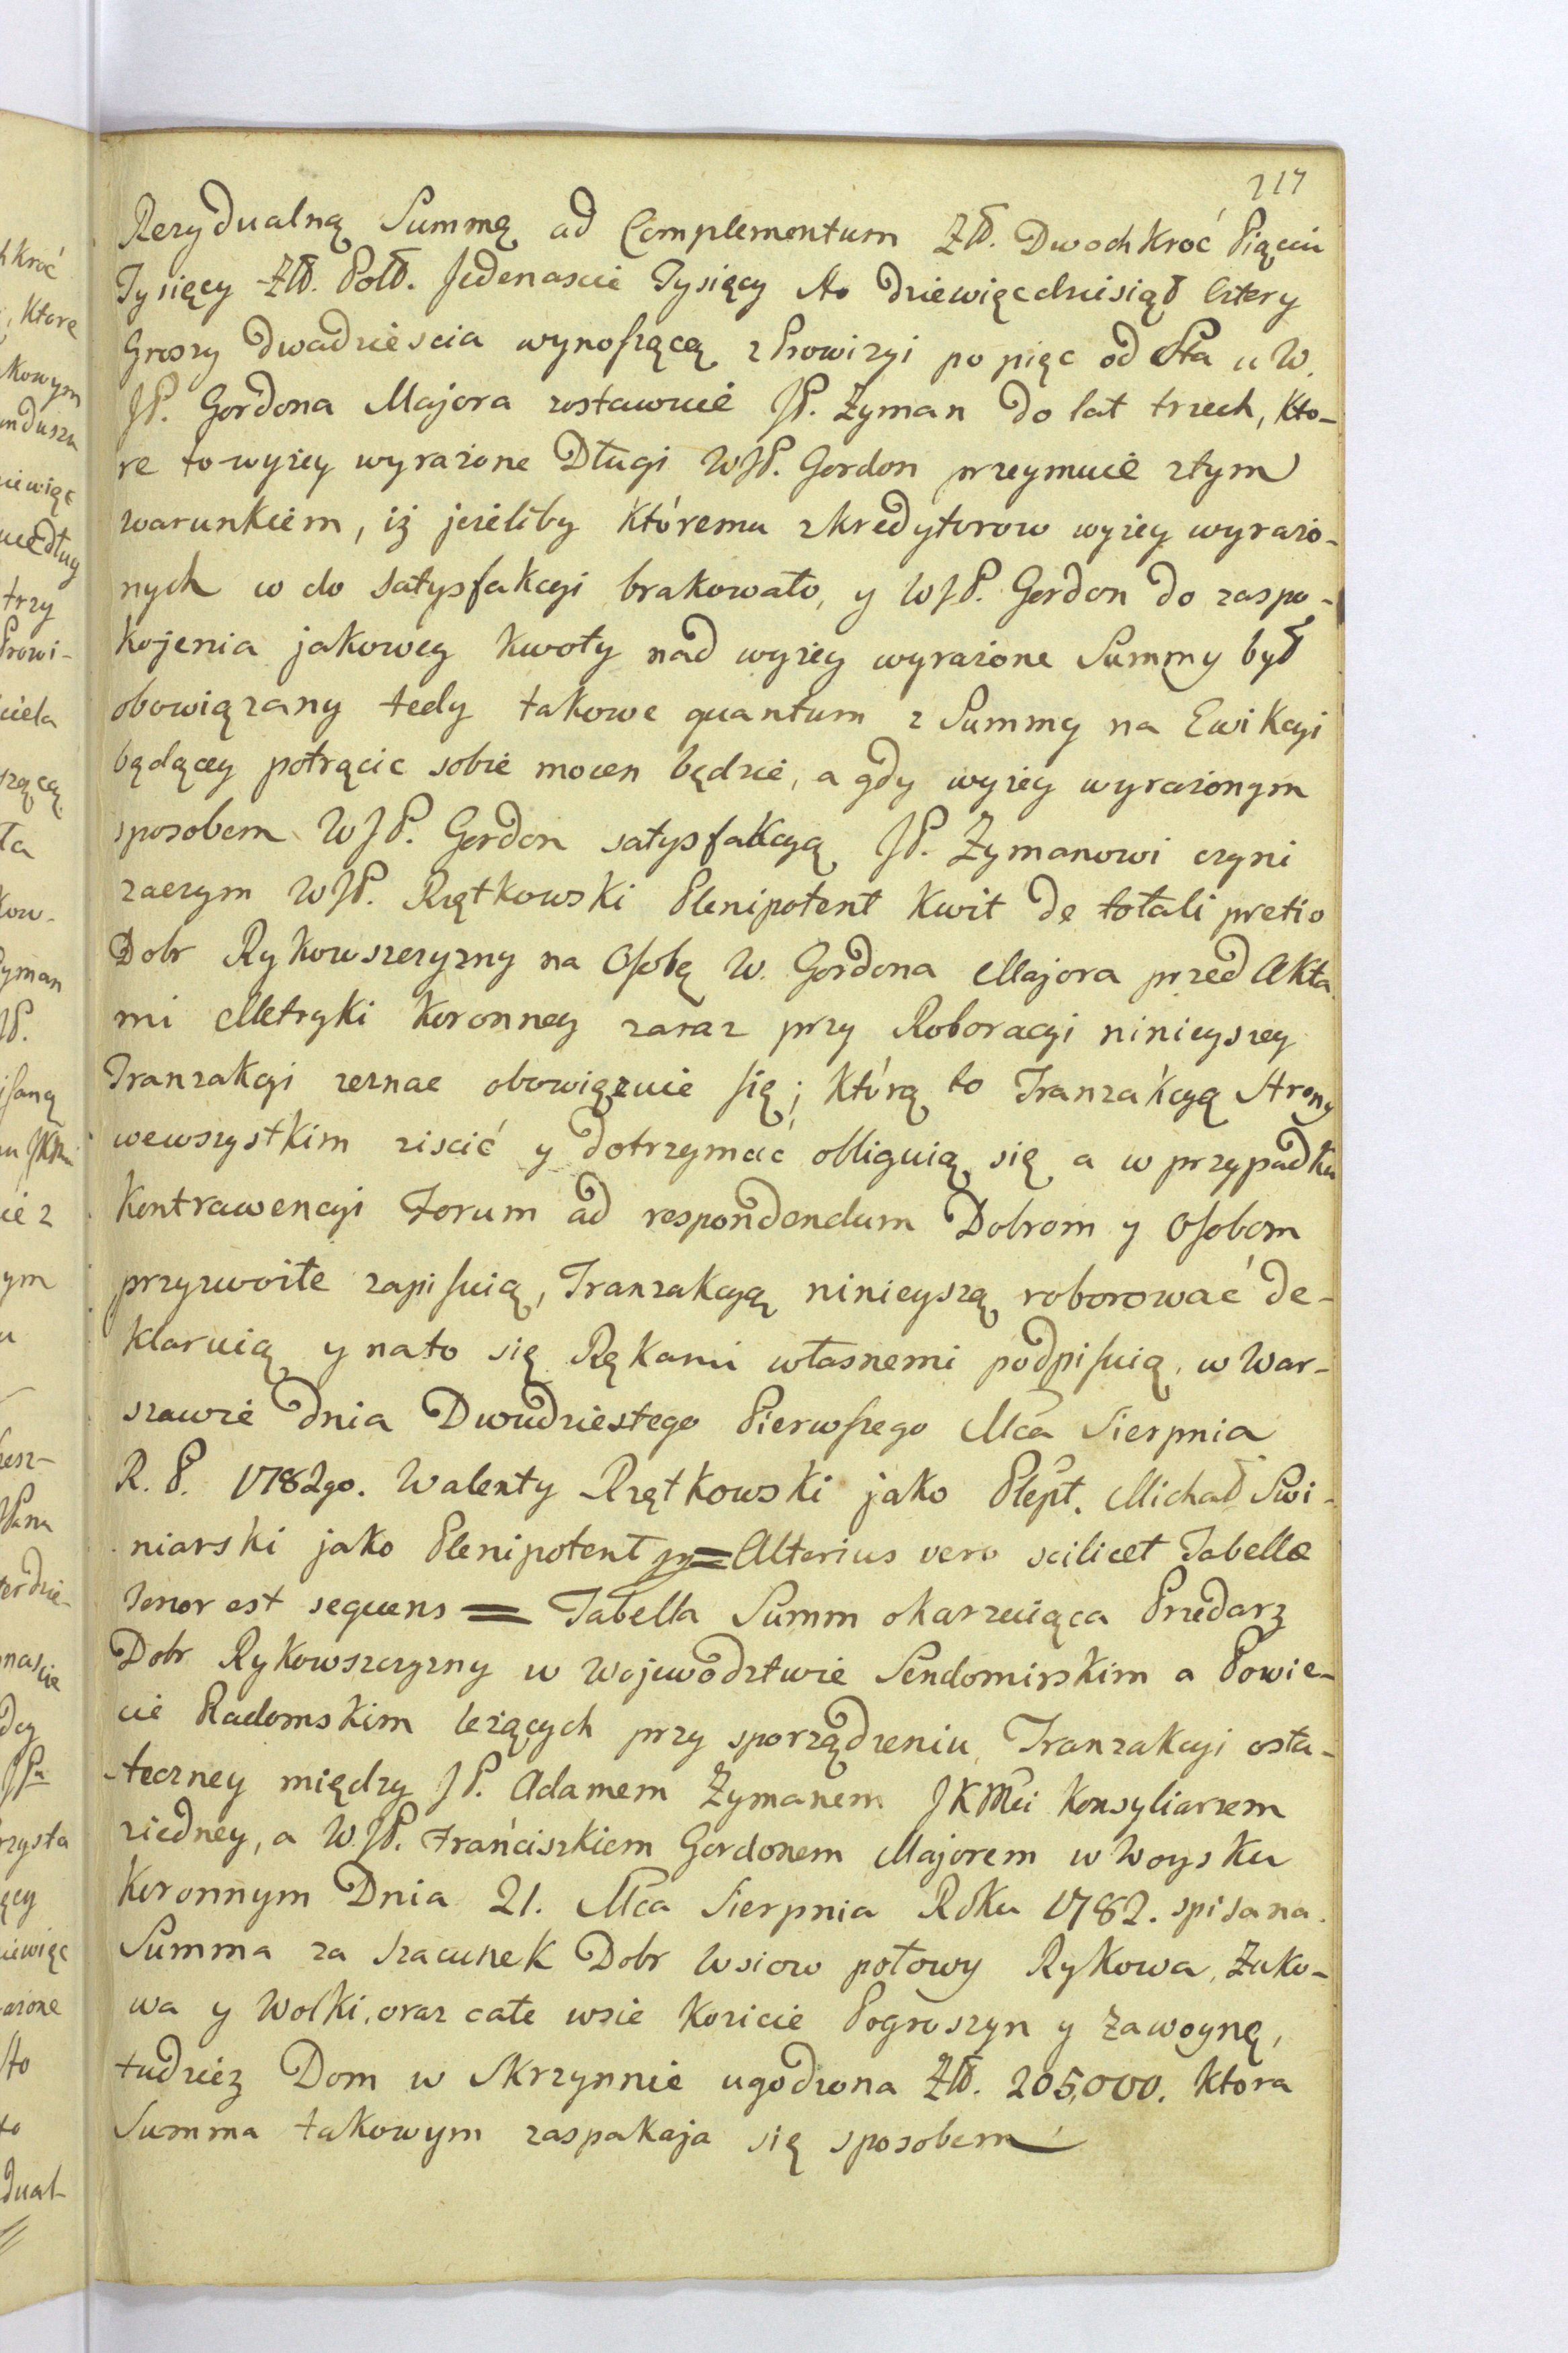 217
Rezydualną Summę ad Complementum Zł. Dwochkroć Pięciu
Tysięcy Zł. Pol. Jedenascie Tysięcy sto dziewięcdziesiąt cztery
Groszy dwadzieścia wynoszącą z Prowizyi po pięc od Sta u W.
JP. Gordona Majora zostawuie JP. Zyman do lat trzech, kto-
re to wyżey wyrażone Długi WJP. Gordon przeymuie z tym
warunkiem, iż jeżeliby któremu z kredytorow wyżey wyrażo-
nych w do satysfakcyi brakowało, y WJP. Gordon do zaspo-
kojenia jakowey kwoty nad wyżey wyrażone Summy był
obowiązany tedy takowe quantum z Summy na Ewikcyi
będącey potrącic sobie mocen będzie, a gdy wyżey wyrażonym
sposobem WJP. Gordon satysfakcyą JP. Zymanowi czyni
zaczym WJP. Rzętkowski Plenipotent kwit de totali pretio
Dobr Rykowszczyzny na Osobę W. Gordona Majora przed Akta
mi Metryki Koronney zaraz przy Roboracyi ninieyszey
Tranzakcyi zeznac obowięzuie się; którą to Tranzakcyą Strony
wewszystkim ziscić y dotrzymać obliguią się a w przypadku
Kontrawencyi Forum ad respondendum Dobrom y Osobom
przyzwoite zapisuią, Tranzakcyą ninieyszą roborować de-
klaruią y na to się Rękami własnemi podpisuią. w War-
szawie dnia Dwudziestego Pierwszego Mca Sierpnia
R. P. 1782go. Walenty Rzętkowski jako Plept. Michał Swi-
niarski jako Plenipotent = Alterius vero scilicet Tabellæ
tenor est sequens = Tabella Summ okazuiąca Przedarz
Dobr Rykowszczyzny w Wojewodztwie Sendomirskim a Powie-
cie Radomskim leżących przy sporządzeniu Tranzakcyi osta-
teczney między JP. Adamem Zymanem JKMci Konsyliarzem
ziedney, a W. JP. Franciszkiem Gordonem Majorem w Woysku
Koronnym Dnia 21. Mca Sierpnia Roku 1782. spisana.
Summa za szacunek Dobr Wsiow połowy Rykowa, Zuko-
wa y Wolki, oraz całe wsie Kozicie Pogroszyn y Zawoynę,
tudzież Dom w Skrzynnie ugodzona Zł. 205,000. ktora
Summa takowym zaspakaja się sposobem